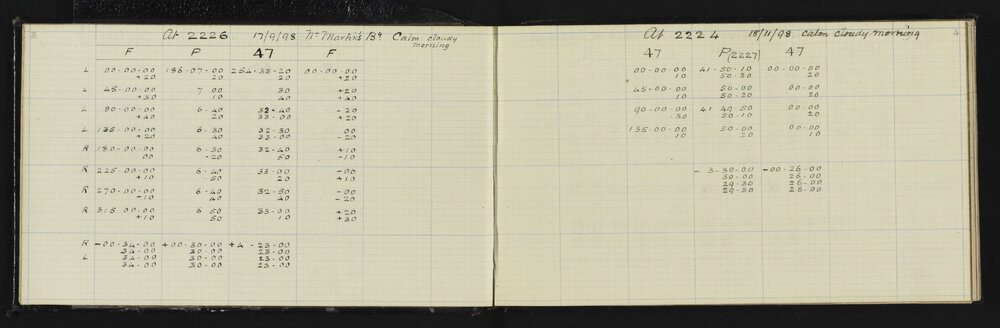 3
At 2226. 17/9/98 Nr Martin's By Calm cloudy
morning
F P 47 F
L 00-00-00 186-07-00 254-33-20 00-00-00
+20 20 20 +20
L 45-00-00 7 00 30 +20
+30 10 40 +40
L 90-00-00 6-40 32-40 -20
+40 20 33-00 +20
L 135-00-00 6-30 32-30 00
+20 40 33-00 -20
R 180-00-00 6-30 32-40 +10
00 -20 50 -10
R 225-00-00 6-40 33-00 -00
+10 50 20 +10
R 270-00-00 6-40 32-50 -00
-10 40 40 -20
R 315 00-00 6-50 33-00 +20
+10 50 10 +30
R -00-34-00 +00-30-00 +4-23-00
34-00 30-00 23-00
L 34-00 30-00 23-00
34-00 30-00 23-00
4
At 2224 18/11/98 Calm cloudy morning
47 P(2227) 47
00-00-00 41-50-10 00-00-00
10 50-30 20
45-00-00 50-00 00-00
10 50-20 20
90-00-00 41 49-50 00-00
-30 50-10 20
135-00-00 50-00 00-00
10 20 10
-3-30-00 -00-26-00
30-00 26-00
29-30 26-00
29-30 26-00